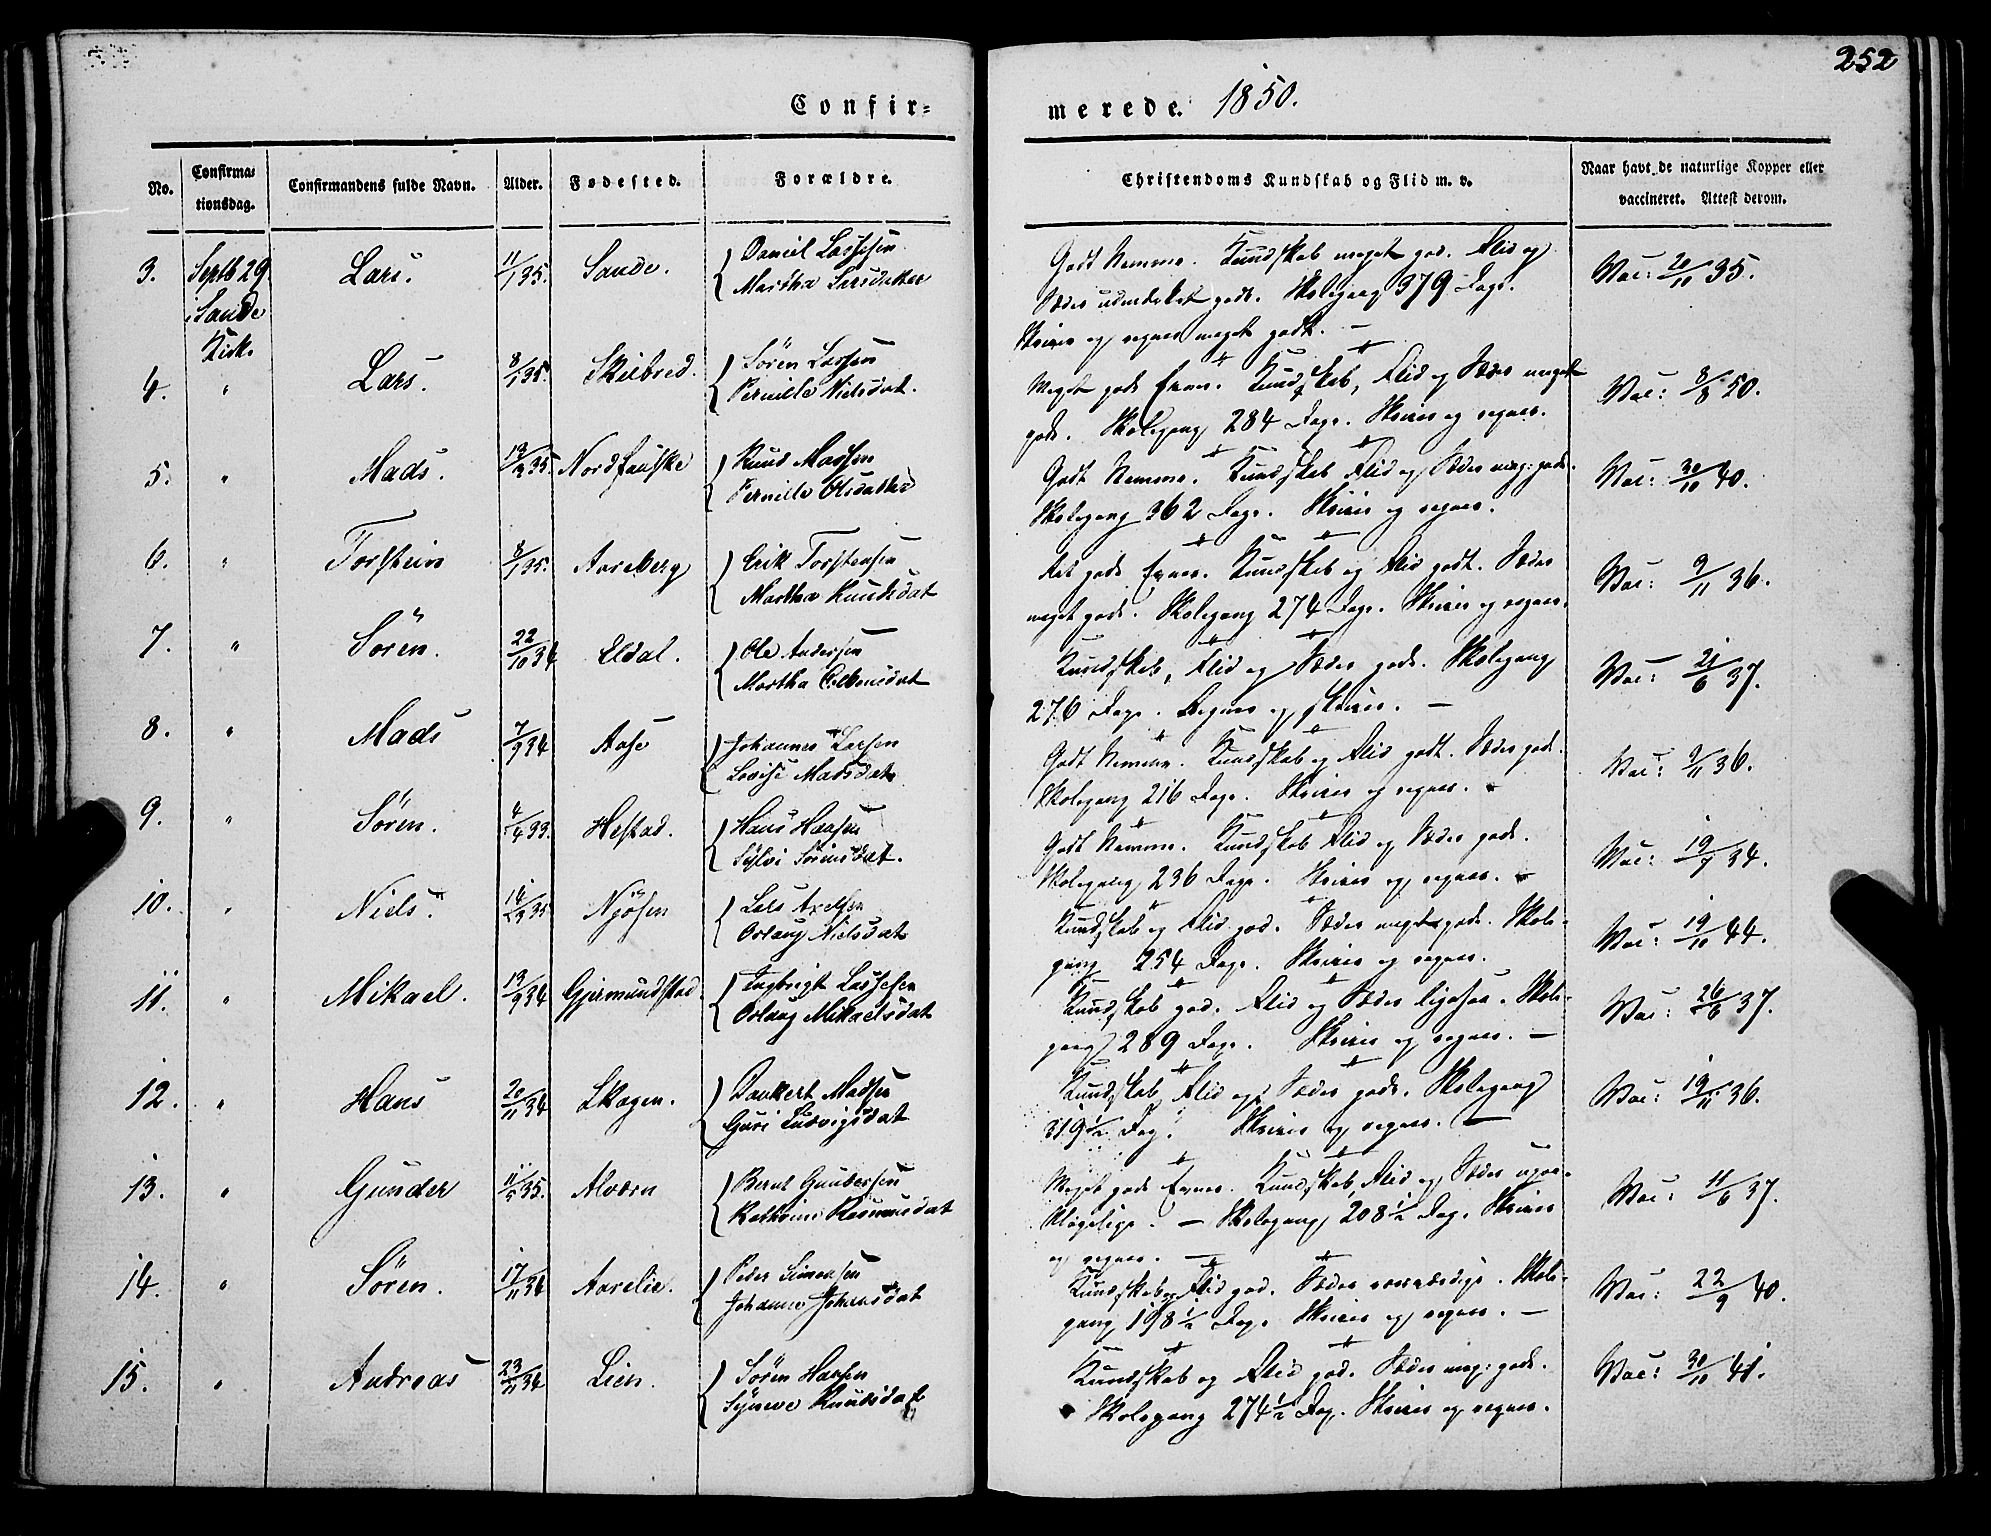 252
Confir-
merede. 1850.
No.
Confirma-
tionsdag.
Confirmandens fulde Navn.
Alder.
Fødested.
Forældre.
Christendoms Kundskab og Flid m. v.
Naar havt de naturlige Kopper eller
vaccineret. Attest derom.
3. Septb 29 Lars. 11/1 35. Sande. { Daniel Lassesen
i Sande Martha Larsdatter
Kirke
Godt Nemme. Kundskab meget god. Flid og
Sæder udmærket gode. Skolegang 379 Dage.
Skriver og regner meget godt. —
Vac: 20/11 35.
4. " Lars. 8/1 35. Skilbred. { Sören Larsen
Pernille Nielsdat.
Meget gode Evner. Kundskab, Flid og Sæder meget
gode. Skolegang 284 Dage. Skriver og regner.
Vac: 8/8 50.
5. " Mads. 13/2 35. Nordfauske { Knud Massen
Pernille Olsdatter
Godt Nemme. Kundskab Flid og Sæder meg: gode.
Skolegang 362 Dage. Skriver og regner.
Vac: 30/10 40.
6. " Torstein 8/1 35. Aareberg { Erik Torstensen
Martha Knudsdat
Ret gode Evner. Kundskab og Flid godt. Sæder
meget gode. Skolegang 274 Dage. Skriver og regner.
Vac: 9/11 36.
7. " Sören. 22/10 34 Eldal. { Ole Andersen
Martha
Kundskab, Flid og Sæder gode. Skolegang
276 Dage. Regner og skriver. —
Vac: 21/6 37.
8. " Mads 7/9 34 Aase { Johannes Larsen
Lovise Madsdat
Godt Nemme. Kundskab og Flid godt. Sæder gode.
Skolegang 216 Dage. Skriver og regner.
Vac: 9/11 36.
9. " Sören. 4/4 33. Hestad. { Hans Hansen
Sylvi Sörensdat.
Godt Nemme. Kundskab Flid og Sæder gode.
Skolegang 236 Dage. Skriver og regner.
Vac: 19/7 34.
10. " Niels. 14/3 35 Njösen { Lars Axelsen
Orlaug Nielsdat
Kundskab og Flid god. Sæder meget gode. Skole-
gang 254 Dage. Skriver og regner.
Vac: 19/10 44.
11. " Mikael. 13/9 34 Gjermundstad. { Ingbrigt Lassesen
Orlaug Mikaelsdat
Kundskab god. Flid og Sæder ligesaa. Skole-
gang 289 Dage. Skriver og regner. —
Vac: 26/6 37.
12. " Hans 20/11 34 Skogen. { Dankert Madsen
Guri Ludvigsdat
Kundskab, Flid og Sæder gode. Skolegang
319 1/2 Dag. Skriver og regner. —
Vac: 19/11 36.
13. " Gunder 11/5 35. Alværn { Bernt Gundersen
Kathrine Rasmusdat
Meget gode Evner. Kundskab, Flid og Sæder upaa-
klagelige. — Skolegang 208 1/2 Dag. Skriver
og regner. —
Vac: 11/6 37.
14. " Sören. 17/11 34 Aarelie. { Peder Simonsen
Johanne Johansdat
Kundskab, Flid god. Sæder roesværdige. Skole-
gang 198 1/2 Dage Skriver og regner. —
Vac: 22/9 40.
15. " Andreas 23/11 34 Lien. { Sören Hansen
Synneve Knudsdat
Kundskab og Flid god. Sæder meg: gode.
Skolegang 274 1/2 Dag. Skriver og regner.
Vac: 30/10 41.